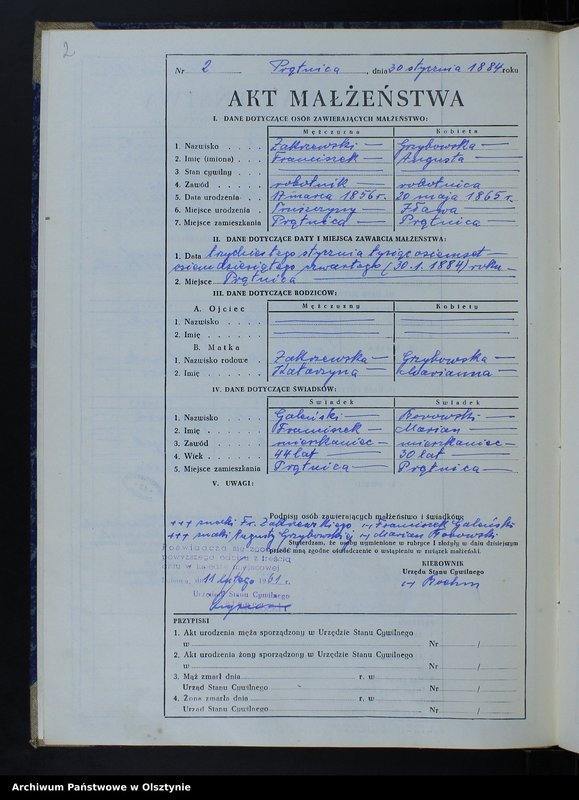 2
Nr 2 Prątnica, dnia 30 stycznia 1884 roku
AKT MAŁŻEŃSTWA
I. DANE DOTYCZĄCE OSÓB ZAWIERAJĄCYCH MAŁŻEŃSTWO:
Mężczyzna Kobieta
1. Nazwisko Zakrzewski Grzybowska
2. Imię (imiona) Franciszek Augusta
3. Stan cywilny
4. Zawód robotnik robotnica
5. Data urodzenia 17 marca 1856 r. 20 maja 1865 r.
6. Miejsce urodzenia Iława
7. Miejsce zamieszkania Prątnica Prątnica
II. DANE DOTYCZĄCE DATY I MIEJSCA ZAWARCIA MAŁŻEŃSTWA:
1. Data trzydziestego stycznia tysiąc osiemset
osiemdziesiątego czwartego (30.1.1884) roku
2. Miejsce Prątnica
III. DANE DOTYCZĄCE RODZICÓW:
A. Ojciec Mężczyzny Kobiety
1. Nazwisko
2. Imię
B. Matka
1. Nazwisko rodowe Zakrzewska Grzybowska
2. Imię Katarzyna Marianna
IV. DANE DOTYCZĄCE ŚWIADKÓW:
Świadek Świadek
1. Nazwisko Galeński Borowski
2. Imię Franciszek Marian
3. Zawód mieszkaniec mieszkaniec
4. Wiek 44 lat 30 lat
5. Miejsce zamieszkania Prątnica Prątnica
V. UWAGI:
Podpisy osób zawierających małżeństwo i świadków:
+++ znaki Fr. Zakrzewskiego (-) Franciszek Galeński
+++ znaki Augusty Grzybowskiej (-) Marian Borowski
Stwierdzam, że osoby wymienione w rubryce I złożyły w dniu dzisiejszym
przede mną zgodne oświadczenie o wstąpieniu w związek małżeński.
Poświadcza się zgodność
powyższego odpisu z treścią
aktu w księdze miejscowej
dnia 11 lutego 1961 r.
Urzędnik Stanu Cywilnego
KIEROWNIK
Urzędu Stanu Cywilnego
(-) Boehm
PRZYPISKI
1. Akt urodzenia męża sporządzono w Urzędzie Stanu Cywilnego
w Nr /
2. Akt urodzenia żony sporządzono w Urzędzie Stanu Cywilnego
w Nr /
3. Mąż zmarł dnia r. w
Urząd Stanu Cywilnego Nr /
4. Żona zmarła dnia r. w
Urząd Stanu Cywilnego Nr /
Archiwum Państwowe w Olsztynie